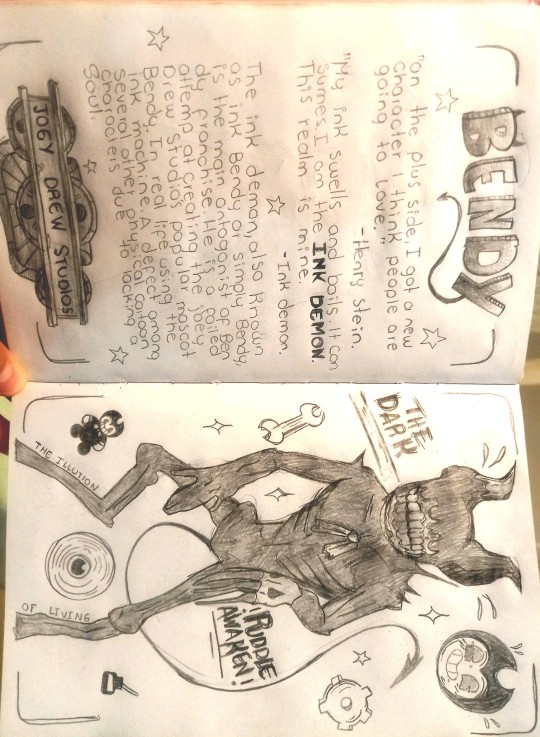 BENDY
"on the plus side, I got a new
character I think people are
going to love."
-Henry Stein.
"My ink swells and boils. It con
sumes. I am the INK DEMON.
This realm is mine.
-Ink demon.
The ink demon, also known
as ink Bendy or simply Bendy,
is the main antagonist of Ben
dy franchise. He the failed
attemp at creating Joey
Drew Studio's popular mascot
Bendy. In real life using the
ink machine. A defect among
several other physical cartoon
characters due to lacking a
soul.
JOEY DREW STUDIOS
THE
DARK
¡PUDDLE
AWAKEN!
THE ILLUTION
OF LIVING